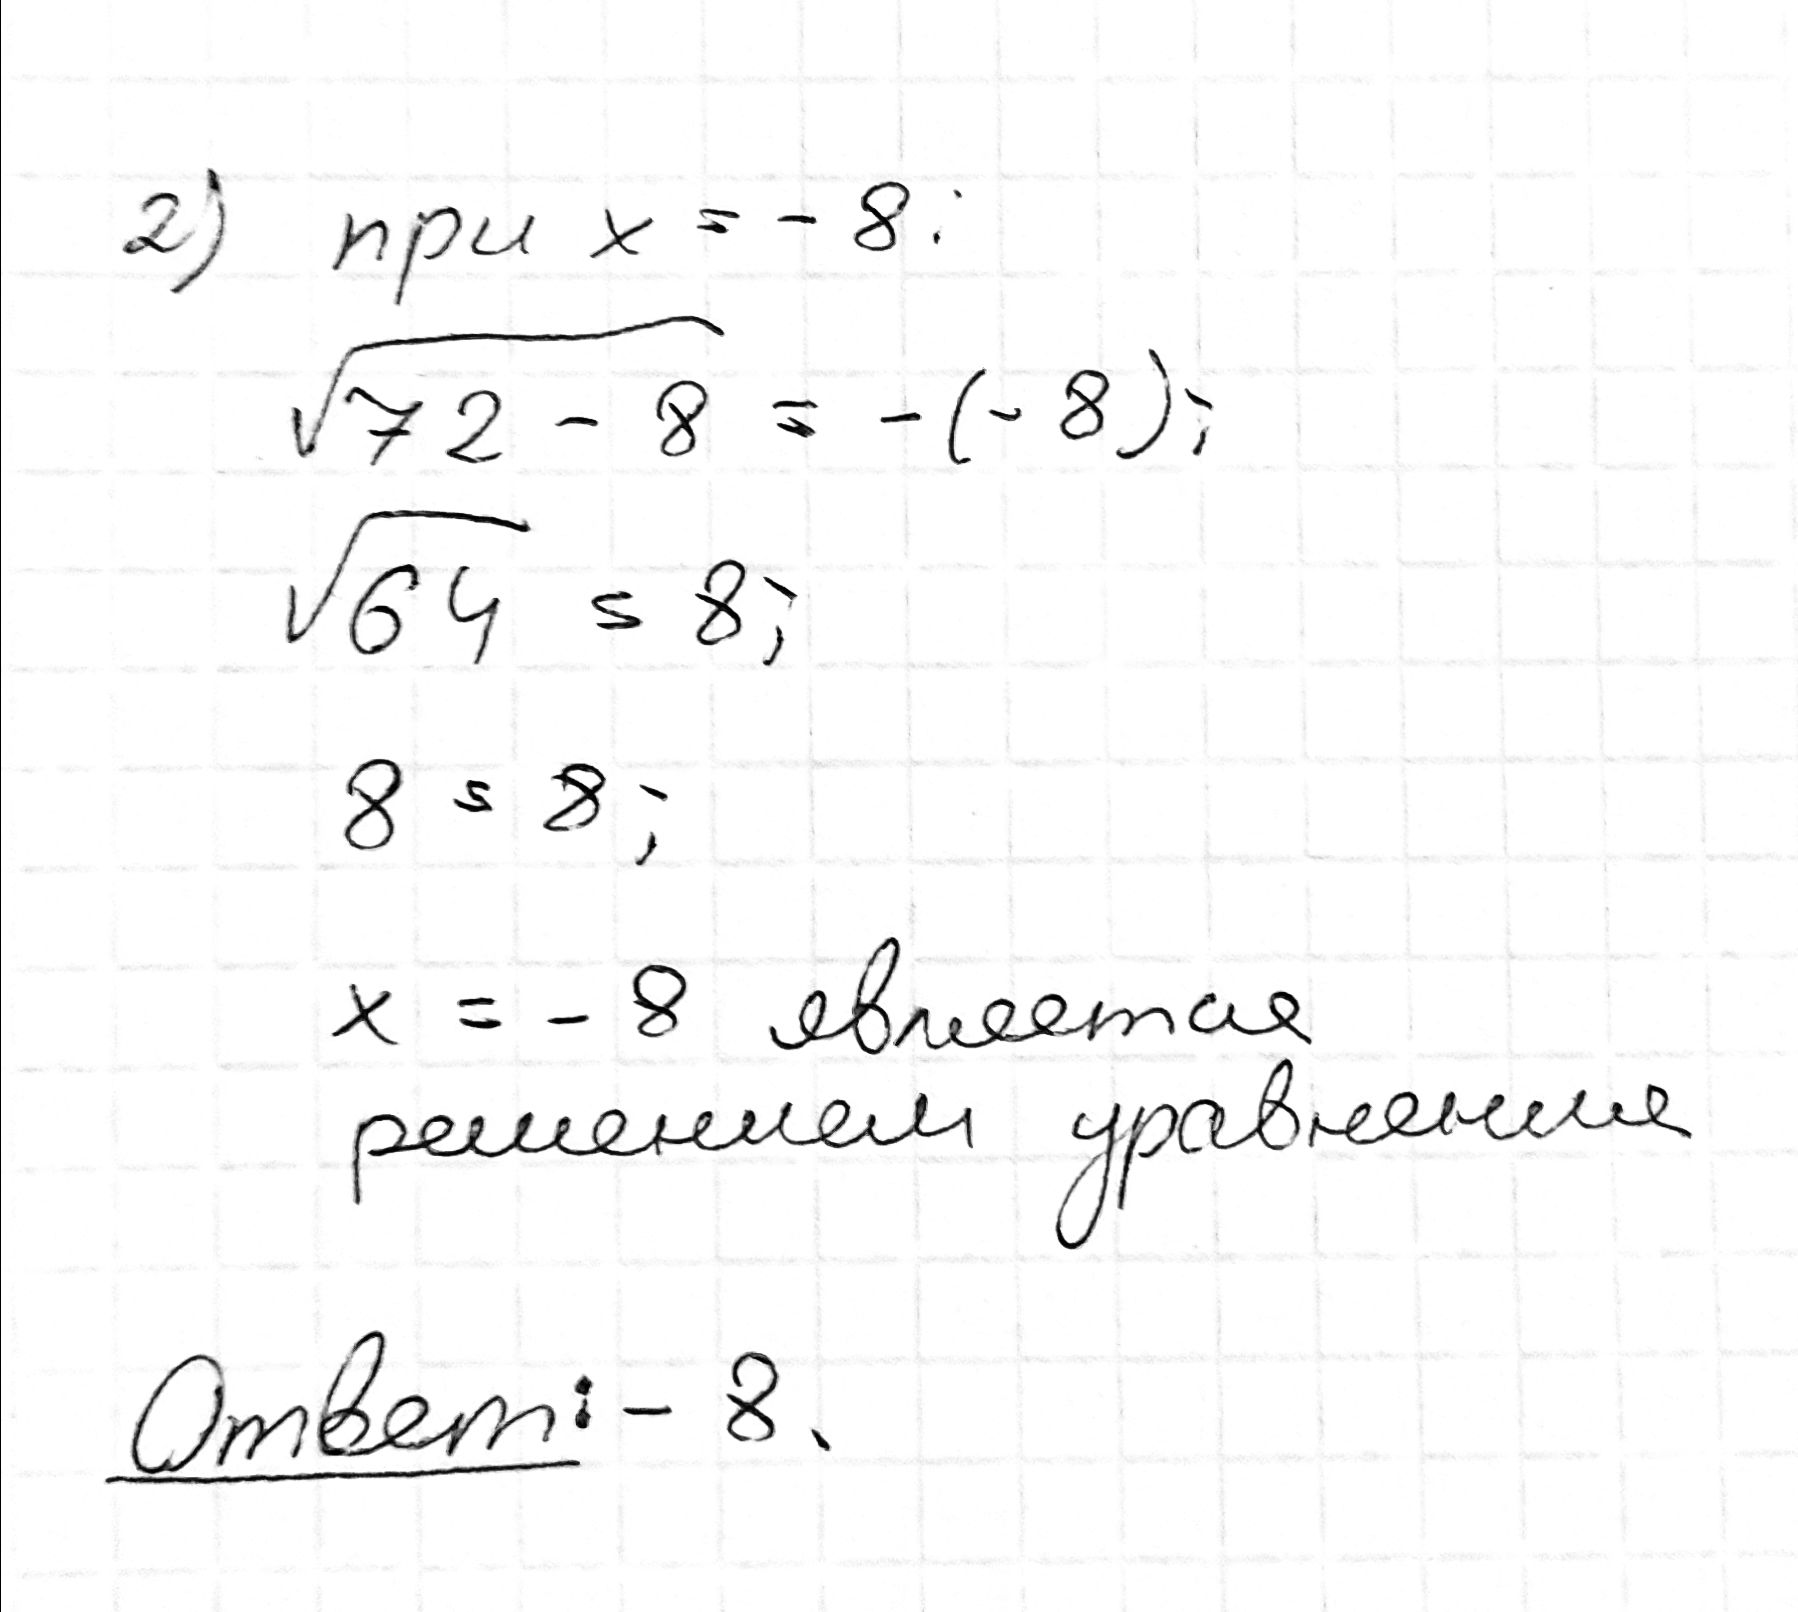 2) при x = - 8:
√72 - 8 = -(- 8);
√64 = 8;
8 = 8;
x = - 8 является
решением уравнения
Ответ: - 8.